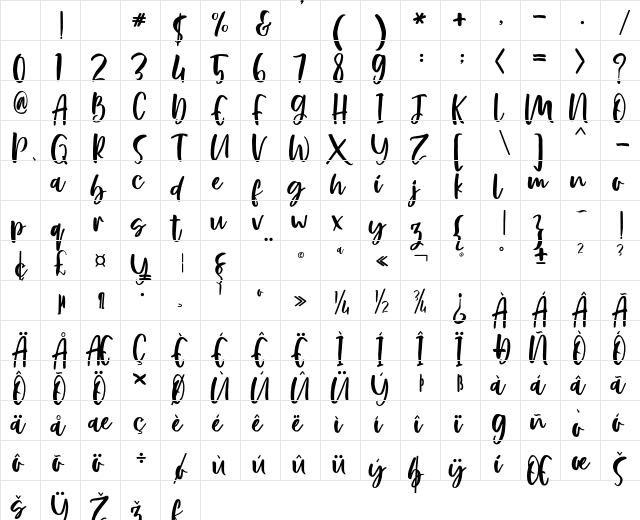 ! # $ % & ' ( ) * + , - . /
0 1 2 3 4 5 6 7 8 9 : ; < = > ?
@ A B C D E F G H I J K L M N O
P Q R S T U V W X Y Z [ \ ] ^ _
a b c d e f g h i j k l m n o
p q r s t u v w x y z { | } ~ ¡
¢ £ ¤ ¥ ¦ § ¨ © ª « ¬ ® ° ± ² ³
µ ¶ · ¸ ¹ º » ¼ ½ ¾ ¿ À Á Â Ã
Ä Å Æ Ç È É Ê Ë Ì Í Î Ï Ð Ñ Ò Ó
Ô Õ Ö × Ø Ù Ú Û Ü Ý Þ ß à á â ã
ä å æ ç è é ê ë ì í î ï ð ñ ò ó
ô õ ö ÷ ø ù ú û ü ý þ ÿ ı Œ œ Š
š Ÿ Ž ž ƒ